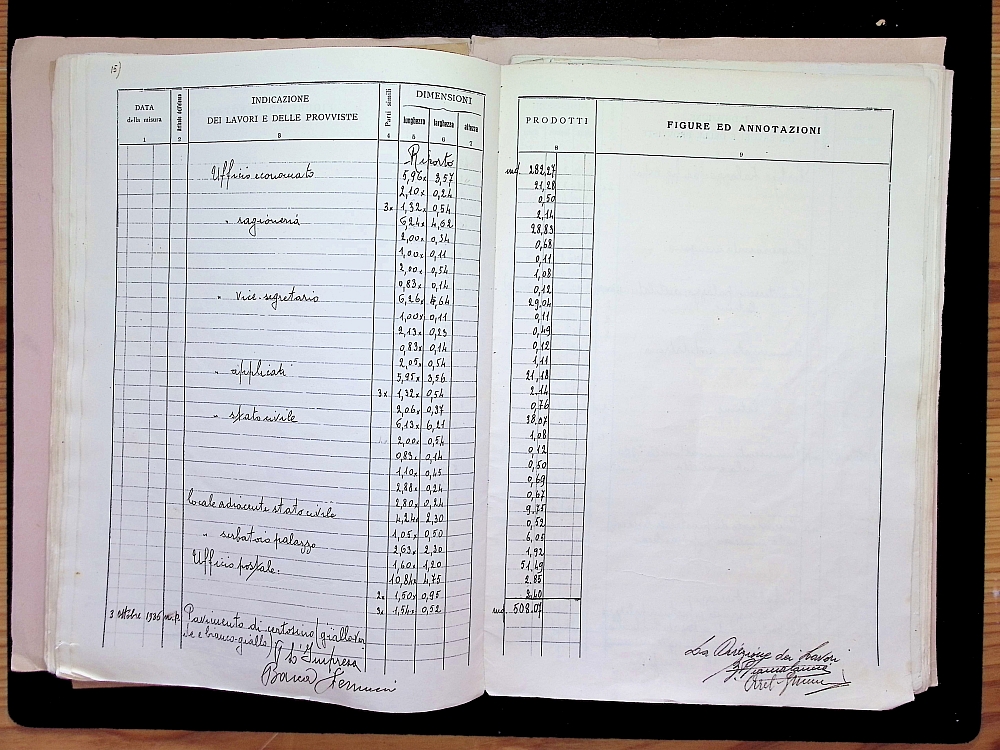 DATA della misura
INDICAZIONE DEI LAVORI E DELLE PROVVISTE
Parti simili
DIMENSIONI
lunghezza larghezza altezza
PRODOTTI
FIGURE ED ANNOTAZIONI
1 2 3 4 5 6 7 8 9
Riporto mq. 282,27
Ufficio economato 5,96 x 3,57 21,28
2,10 x 0,24 0,50
3x 1,32 x 0,54 2,14
" ragioneria 6,24 x 4,62 28,83
2,00 x 0,34 0,68
1,00 x 0,11 0,11
2,00 x 0,54 1,08
0,83 x 0,14 0,12
" vice-segretario 6,26 x 4,64 29,04
1,00 x 0,11 0,11
2,13 x 0,23 0,49
0,83 x 0,14 0,12
2,05 x 0,54 1,11
" applicati 5,95 x 3,56 21,18
3x 1,32 x 0,54 2,14
2,06 x 0,37 0,76
" stato civile 6,13 x 6,21 38,07
2,00 x 0,54 1,08
0,83 x 0,14 0,12
1,10 x 0,45 0,50
2,88 x 0,24 0,69
2,80 x 0,24 0,67
locale adiacente stato civile 4,24 x 2,30 9,75
1,05 x 0,50 0,52
" serbatoio palazzo 2,63 x 2,30 6,05
1,60 x 1,20 1,92
Ufficio postale. 10,84 x 4,75 51,49
2x 1,50 x 0,95 2,85
3x 1,54 x 0,52 2,40
3 ottobre 1936 Pavimento di certosino (giallo-ver mq. 508,07
de e bianco-giallo)
p. la Impresa
La Direzione dei Lavori